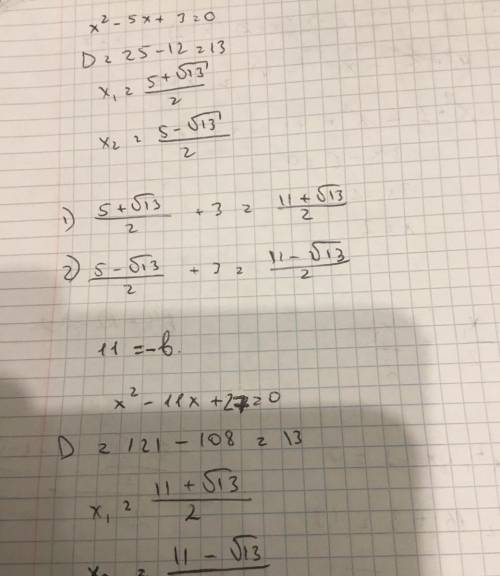 x² - 5x + 3 = 0
D = 25 - 12 = 13
x₁ = (5 + √13)/2
x₂ = (5 - √13)/2
1) (5 + √13)/2 + 3 = (11 + √13)/2
2) (5 - √13)/2 + 3 = (11 - √13)/2
11 = -b.
x² - 11x + 27 = 0
D = 121 - 108 = 13
x₁ = (11 + √13)/2
= 11 - √13